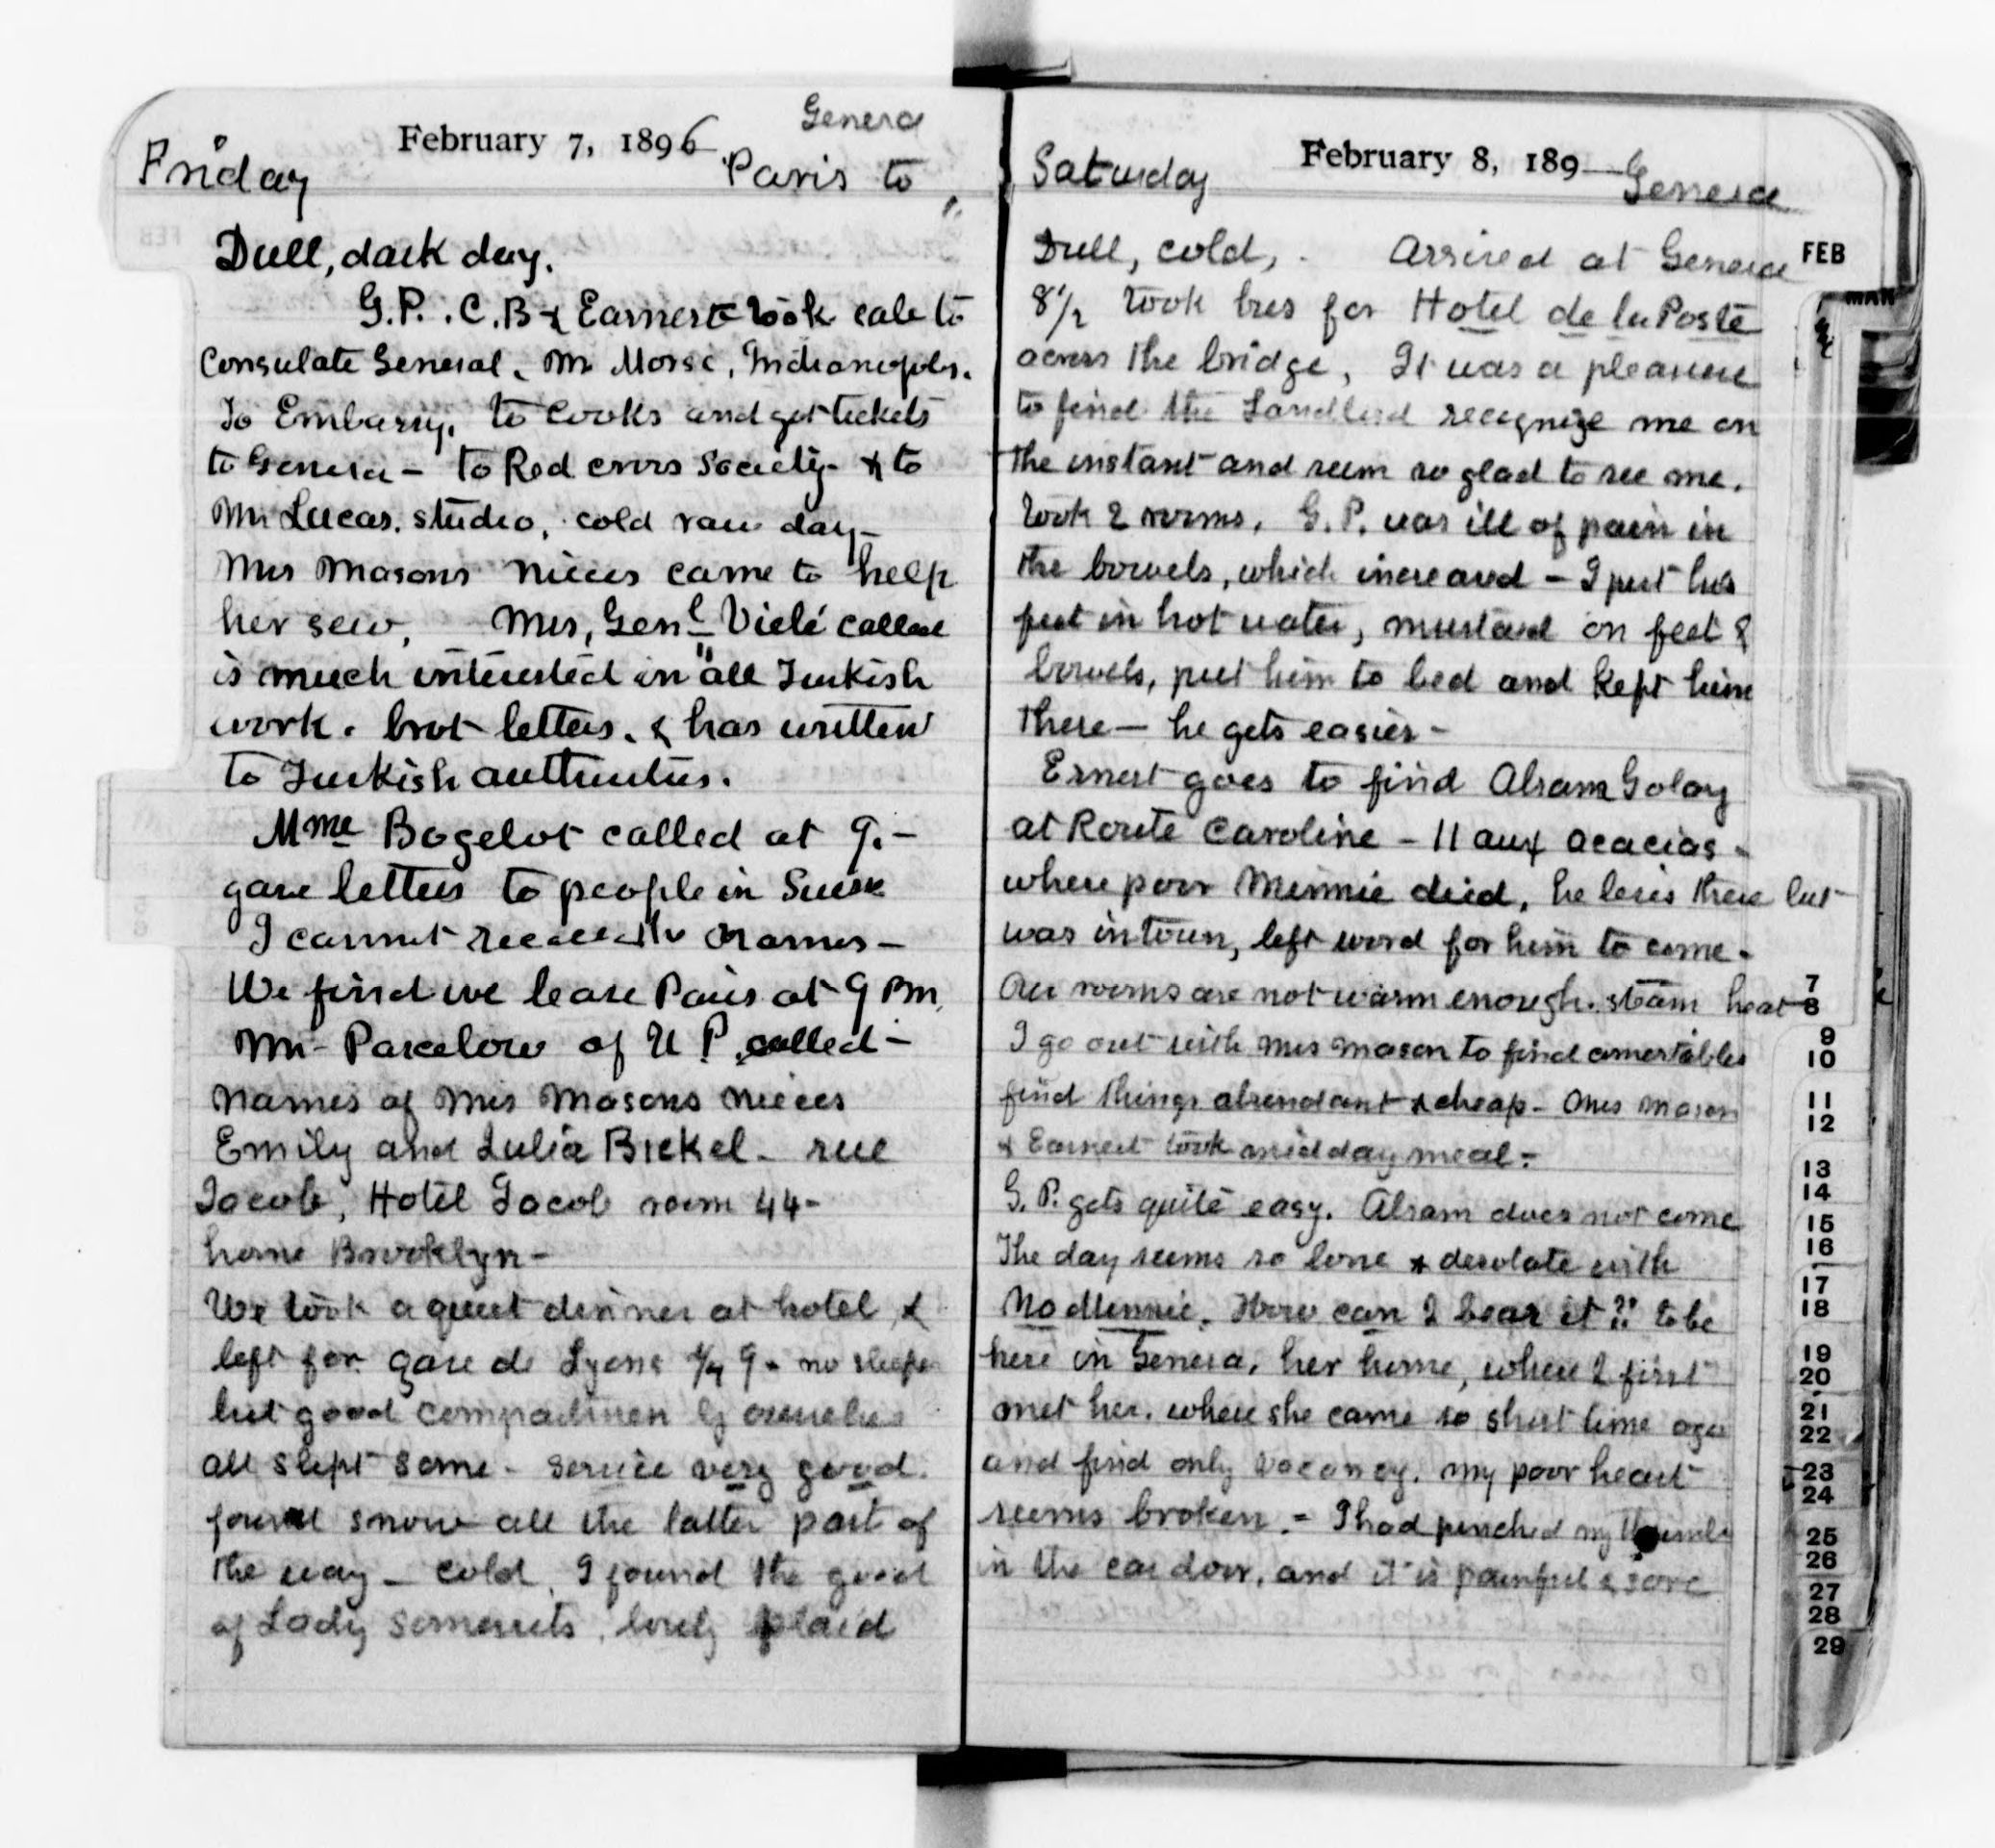 Geneva
February 7, 1896
Friday Paris to
Dull, dark day.
G.P. C.B & Earnest took cab to
Consulate General, Mr Morse, Indianapolis.
To Embassy, to Cooks and got tickets
to Geneva – to Red cross Society & to
Mr Lucas. studio, cold raw day –
Mrs Masons nieces came to help
her sew, Mrs, Genl Vielé called
is much interested in "all Turkish
work. brot letters. & has written
to Turkish authorities.
Mme Bogelot called at 9. –
gave letters to people in
I cannot names –
We find we leave Paris at 9 PM.
Mr Parcelow of U P. called –
Names of Mrs Masons nieces
Emily and Julia Bickel – rue
Jacob, Hotel Jacob room 44 –
home Brooklyn –
We took a quiet dinner at hotel &
left for gare de Lyons 9 – no sleeper
but good compartmen by ourselves
all slept some – service very good.
found snow all the latter part of
the way – cold. I found the good
of Lady somersets, lovely plaid
Saturday February 8, 189 Geneva
Dull, cold, . Arrived at Geneva
8 1/2 took bus for Hotel de la Poste
across the bridge, It was a pleasure
to find the Landlord recognize me on
the instant and seem so glad to see me.
Took 2 rooms. G.P. was ill of pain in
the bowels, which increased – I put his
feet in hot water, mustard on feet &
bowels, put him to bed and kept him
there – he gets easier –
Ernest goes to find Abram Golay
at Route Caroline – 11 aux acacias –
where poor Minnie died, he lives there but
was in town, left word for him to come –
Our rooms are not warm enough. steam heat
I go out with Mrs Mason to find
find things abundant & cheap – Mrs Mason
& Earnest took mid day meal –
G.P. gets quite easy. Abram does not come
The day seems so lone & desolate with
No Minnie. How can I bear it ?! to be
here in Geneva, her home, where I first
met her. where she came so short time ago
and find only vacancy. my poor heart
seems broken. – I had pinched my thumb
in the car door, and it is painful & sore
FEB
MAR
7
8
9
10
11
12
13
14
15
16
17
18
19
20
21
22
23
24
25
26
27
28
29